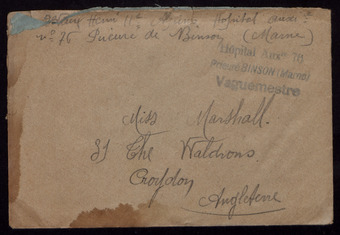 Henri 11e Hôpital auxre
no 76 Prieuré de Binson (Marne)
Hôpital Auxre 76
Prieuré BINSON (Marne)
Vaguemestre
Miss Marshall.
81 The Waldrons.
Croydon
Angleterre